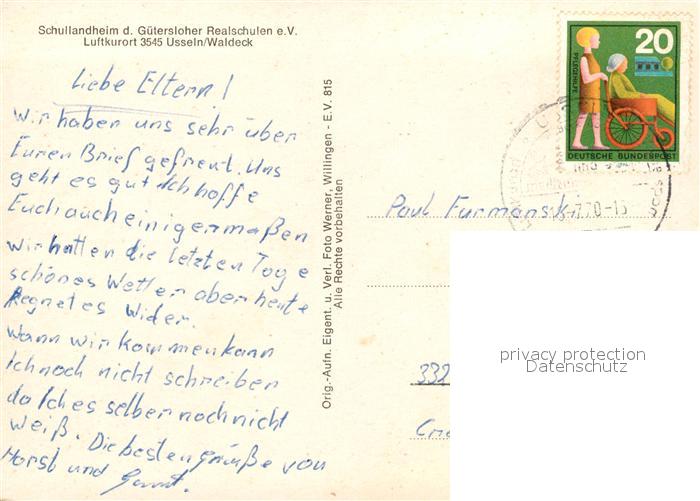 Schullandheim d. Gütersloher Realschulen e.V.
Luftkurort 3545 Usseln/Waldeck
Liebe Eltern!
Wir haben uns sehr über
Euren Brief gefreut. Uns
geht es gut Ich hoffe
Euch auch einigermaßen
wir hatten die letzten Tage
schönes Wetter aber heute
Regnet es Wider.
Wann wir kommen kann
Ich noch nicht schreiben
da Ich es selber noch nicht
weiß. Die besten grüße von
Horst und
Orig.-Aufn. Eigent. u. Verl. Foto Werner, Willingen - E.V. 815
Alle Rechte vorbehalten
20
PFLEGEHILFE
DEUTSCHE BUNDESPOST
7.70-15
Paul Furmanski
332
privacy protection
Datenschutz